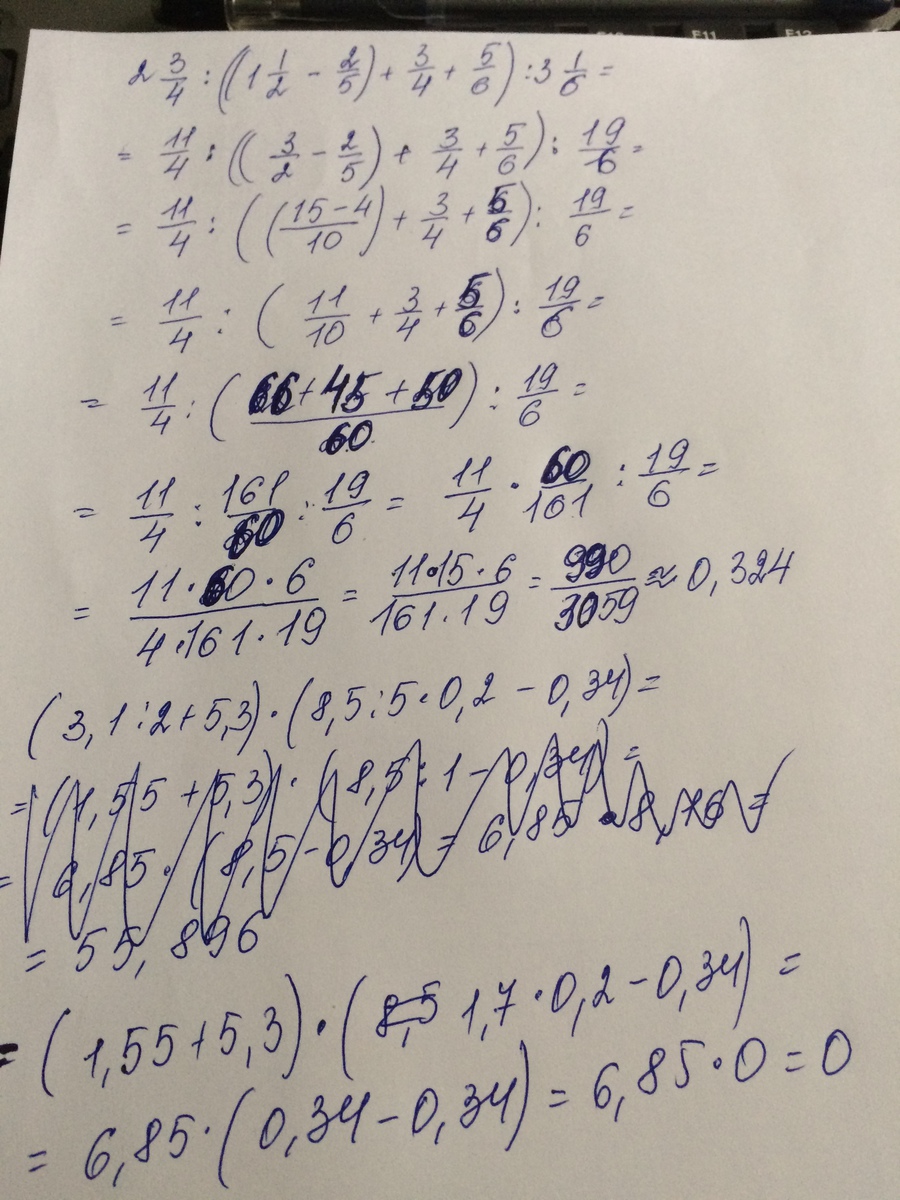 F11 F12
2 3/4 : ((1 1/2 - 2/5) + 3/4 + 5/6) : 3 1/6 =
= 11/4 : ((3/2 - 2/5) + 3/4 + 5/6) : 19/6 =
= 11/4 : (((15-4)/10) + 3/4 + 5/6) : 19/6 =
= 11/4 : (11/10 + 3/4 + 5/6) : 19/6 =
= 11/4 : ((66+45+50)/60) : 19/6 =
= 11/4 : 161/60 : 19/6 = 11/4 · 60/161 : 19/6 =
= (11·60·6)/(4·161·19) = (11·15·6)/(161·19) = 990/3059 ≈ 0,324
(3,1:2+5,3)·(8,5:5·0,2-0,34)=
= (1,55+5,3)·(8,5:1-0,34)=
= 6,85·(8,5-0,34)= 6,85·8,16=
= 55,896
= (1,55+5,3)·(8,5 1,7·0,2-0,34)=
= 6,85·(0,34-0,34)= 6,85·0=0